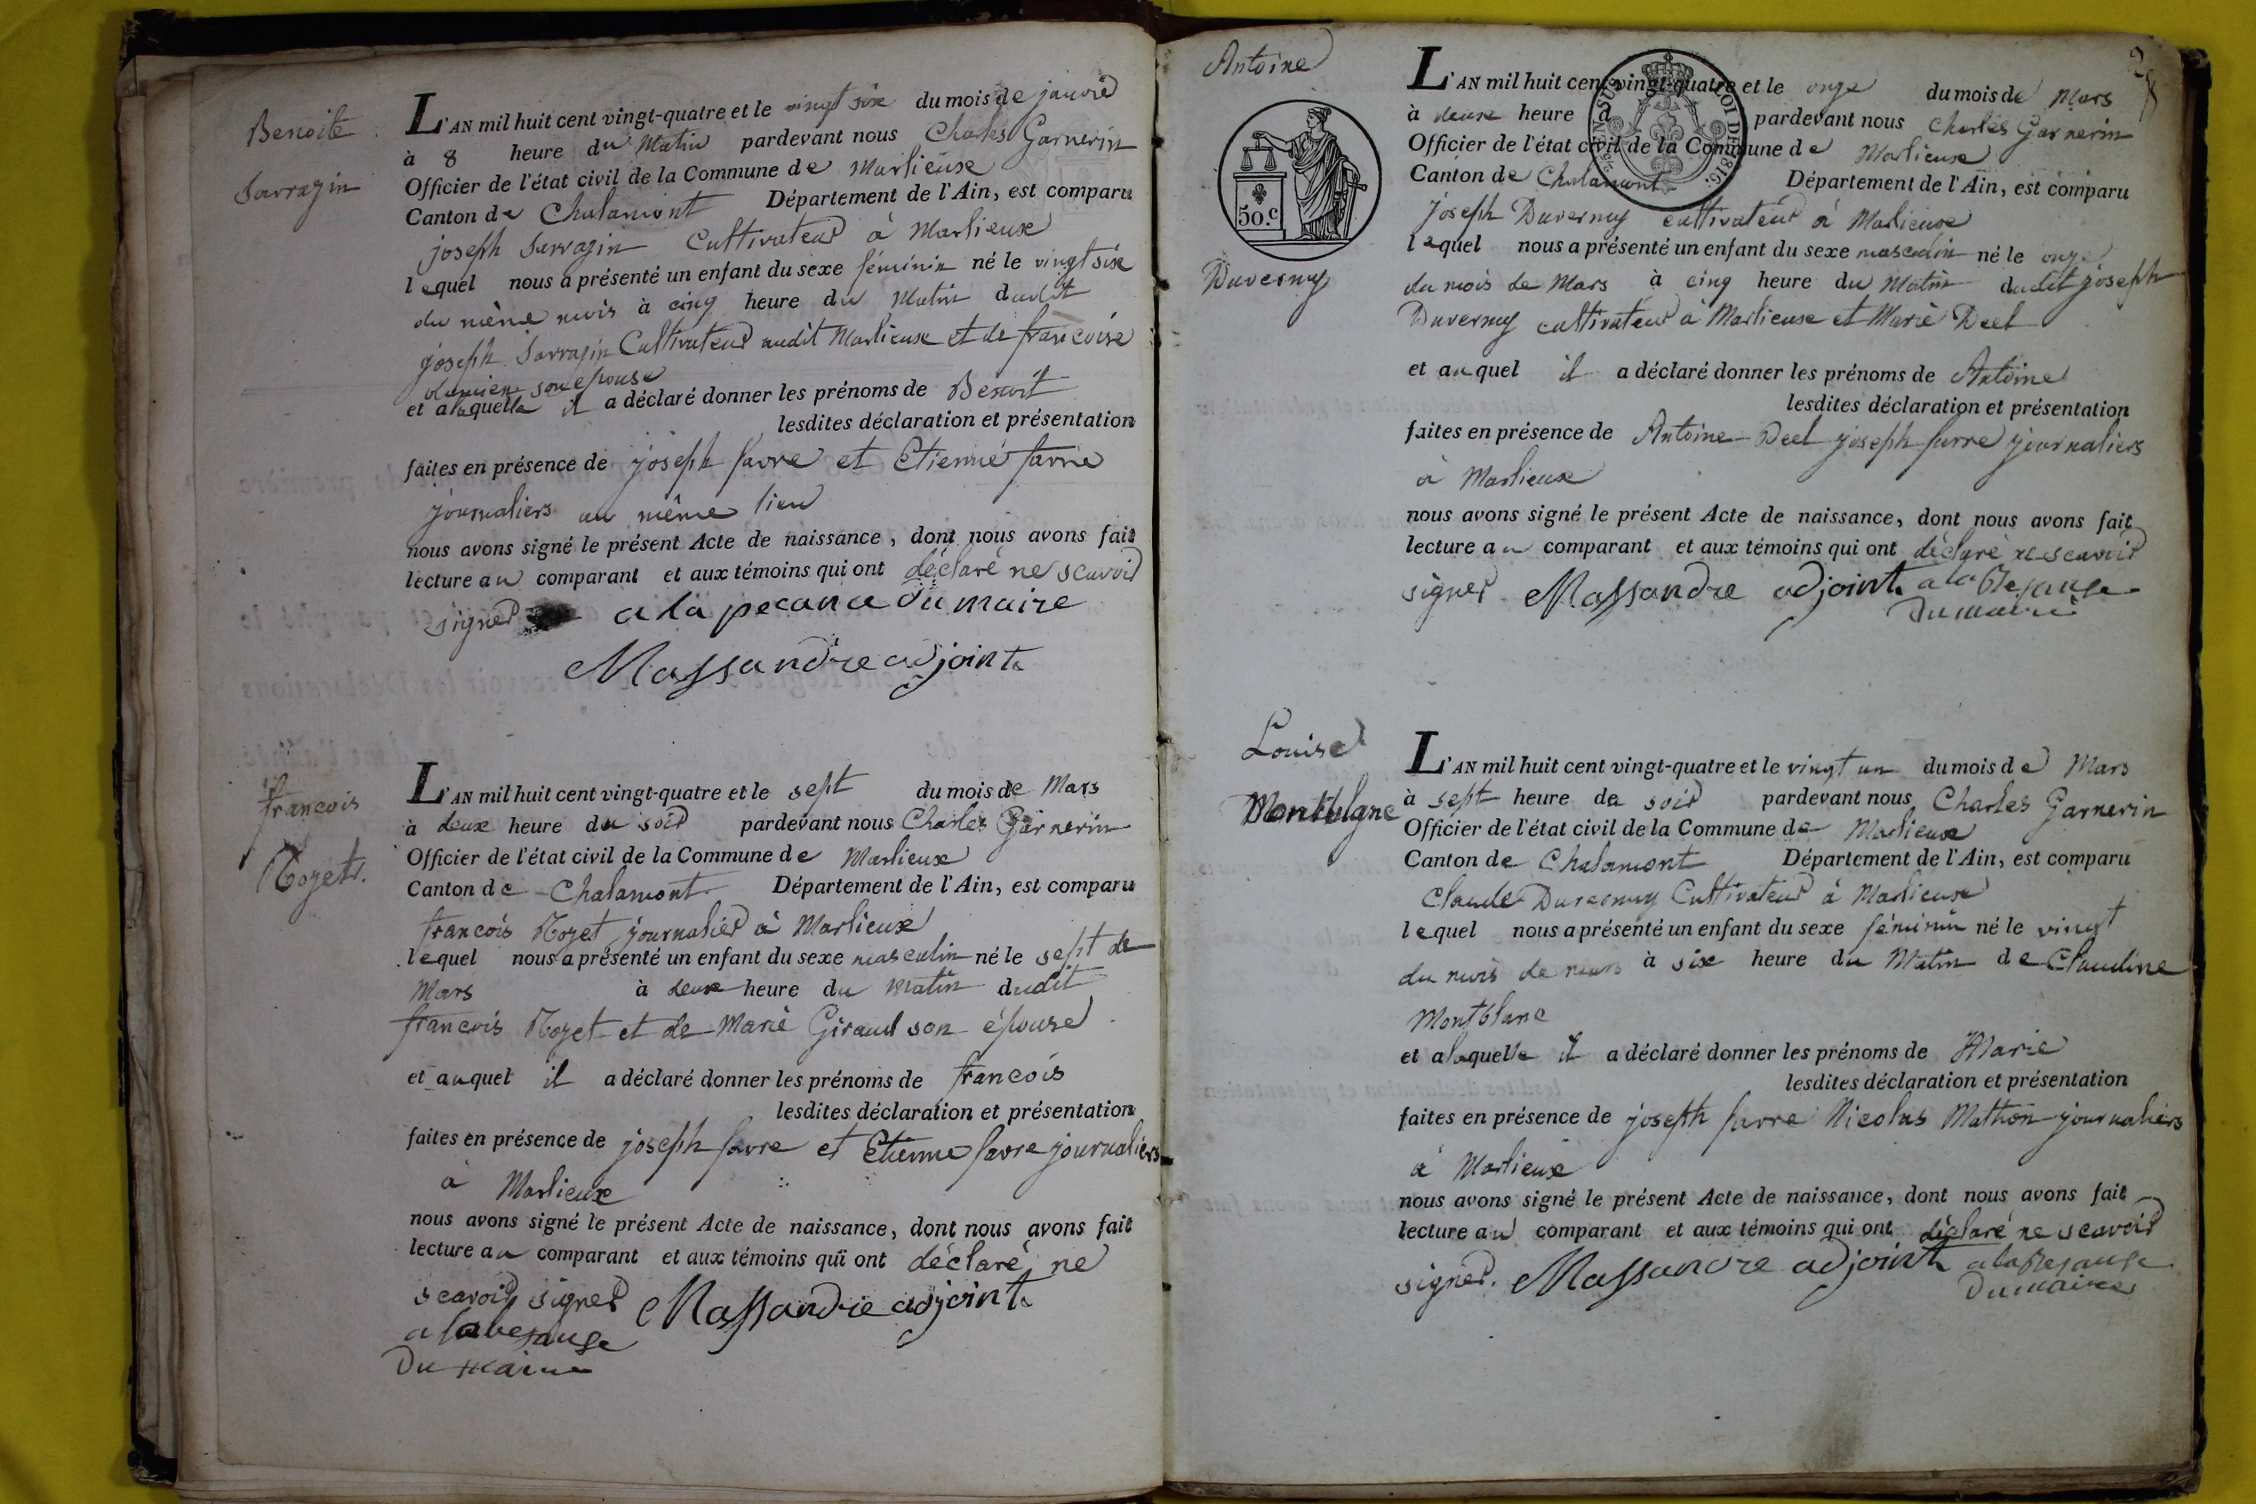 Benoite
Sarrazin
L'AN mil huit cent vingt-quatre et le vingt six du mois de janvié
à 8 heure du Matin pardevant nous Charles Garnerin
Officier de l'état civil de la Commune de Marlieux
Canton de Chalamont Département de l'Ain, est comparu
joseph Sarrazin Cultivateur à Marlieux
lequel nous a présenté un enfant du sexe féminin né le vingt six
du même mois à cinq heure du Matin dudit
joseph Sarrazin Cultivateur audit Marlieux et de francoise
son epouse
et a laquelle il a déclaré donner les prénoms de Benoit
lesdites déclaration et présentation
faites en présence de joseph favre et Etienne favre
journaliers au même lieu
nous avons signé le présent Acte de naissance, dont nous avons fait
lecture au comparant et aux témoins qui ont déclaré ne scavoir
signer a la pecance du maire
Massandre adjoint
francois
Rozet.
L'AN mil huit cent vingt-quatre et le sept du mois de Mars
à deux heure du soir pardevant nous Charles Garnerin
Officier de l'état civil de la Commune de Marlieux
Canton de Chalamont Département de l'Ain, est comparu
francois Rozet journalier à Marlieux
lequel nous a présenté un enfant du sexe masculin né le sept de
Mars à deux heure du Matin dudit
francois Rozet et de Marie Giraud son épouse
et auquel il a déclaré donner les prénoms de francois
lesdites déclaration et présentation
faites en présence de joseph favre et Etienne favre journaliers
à Marlieux
nous avons signé le présent Acte de naissance, dont nous avons fait
lecture au comparant et aux témoins qui ont déclaré ne
scavoir signer Massandre adjoint
a la
Du maire
Antoine
50.c
Duvernay
2
L'AN mil huit cent vingt-quatre et le onze du mois de Mars
à deux heure d pardevant nous Charles Garnerin
Officier de l'état civil de la Commune de Marlieux
Canton de Chalamont Département de l'Ain, est comparu
LOI DE 1816.
joseph Duvernay cultivateur à Marlieux
lequel nous a présenté un enfant du sexe masculin né le onze
du mois de Mars à cinq heure du Matin dudit joseph
Duvernay cultivateur à Marlieux et Marie Deel
et auquel il a déclaré donner les prénoms de Antoine
lesdites déclaration et présentation
faites en présence de Antoine Deel joseph favre journaliers
à Marlieux
nous avons signé le présent Acte de naissance, dont nous avons fait
lecture au comparant et aux témoins qui ont déclaré ne scavoir
signer Massandre adjoint a la
Du maire
Louise
Montblanc
L'AN mil huit cent vingt-quatre et le vingt un du mois de Mars
à sept heure de soir pardevant nous Charles Garnerin
Officier de l'état civil de la Commune de Marlieux
Canton de Chalamont Département de l'Ain, est comparu
Claude Duvernay Cultivateur à Marlieux
lequel nous a présenté un enfant du sexe féminin né le vingt
du mois de mars à six heure du Matin de Claudine
Montblanc
et a laquelle il a déclaré donner les prénoms de Marie
lesdites déclaration et présentation
faites en présence de joseph favre Nicolas Mathon journaliers
à Marlieux
nous avons signé le présent Acte de naissance, dont nous avons fait
lecture au comparant et aux témoins qui ont déclaré ne scavoir
signer. Massandre adjoint a la
Du maire